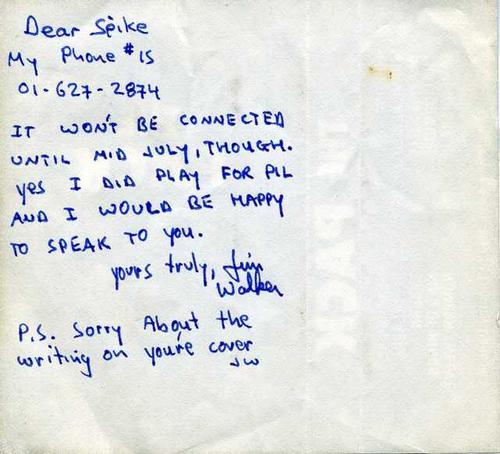 Dear Spike
My Phone # is
01-627-2874
IT WON'T BE CONNECTED
UNTIL MID JULY, THOUGH.
yes I DID PLAY FOR PIL
AND I WOULD BE HAPPY
TO SPEAK TO YOU.
yours truly, Jim
Walker
P.S. Sorry About the
writing on you're cover
JW